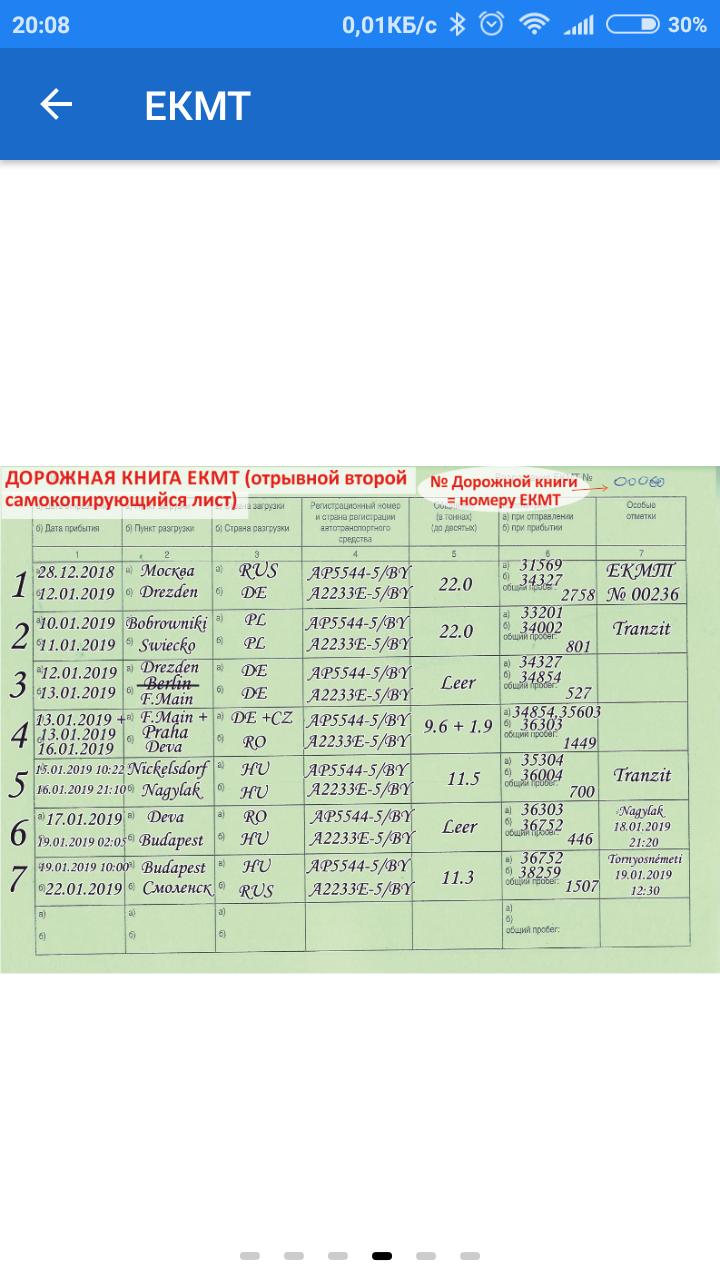 20:08 0,01КБ/с 30%
ЕКМТ
ДОРОЖНАЯ КНИГА ЕКМТ (отрывной второй
самокопирующийся лист)
№ Дорожной книги
= номеру ЕКМТ
б) Дата прибытия
б) Пункт разгрузки
б) Страна разгрузки
Регистрационный номер
и страна регистрации
автотранспортного
средства
(в тоннах)
(до десятых)
а) при отправлении
б) при прибытии
Особые
отметки
1 2 3 4 5 6 7
1
а) 28.12.2018 а) Москва а) RUS AP5544-5/BY 22.0 а) 31569 ЕКМТ
б) 12.01.2019 б) Drezden б) DE A2233E-5/BY б) 34327 № 00236
общий пробег: 2758
2
а) 10.01.2019 Bobrowniki а) PL AP5544-5/BY 22.0 а) 33201 Tranzit
б) 11.01.2019 б) Swiecko б) PL A2233E-5/BY б) 34002
общий пробег: 801
3
а) 12.01.2019 а) Drezden а) DE AP5544-5/BY Leer а) 34327
б) 13.01.2019 б) Berlin б) DE A2233E-5/BY б) 34854
F.Main
общий пробег: 527
4
13.01.2019 + а) F.Main + а) DE +CZ AP5544-5/BY 9.6 + 1.9 а) 34854,35603
13.01.2019 Praha
16.01.2019 б) Deva б) RO A2233E-5/BY б) 36303
общий пробег: 1449
5
15.01.2019 10:22 Nickelsdorf а) HU AP5544-5/BY 11.5 а) 35304 Tranzit
16.01.2019 21:10 б) Nagylak б) HU A2233E-5/BY б) 36004
общий пробег: 700
6
а) 17.01.2019 а) Deva а) RO AP5544-5/BY Leer а) 36303 Nagylak
19.01.2019 02:05 б) Budapest б) HU A2233E-5/BY б) 36752 18.01.2019
общий пробег: 446 21:20
7
19.01.2019 10:00 а) Budapest а) HU AP5544-5/BY 11.3 а) 36752 Tornyosnémeti
б) 22.01.2019 б) Смоленск б) RUS A2233E-5/BY б) 38259 19.01.2019
общий пробег: 1507 12:30
а) а) а) а)
б) б) б) б)
общий пробег: